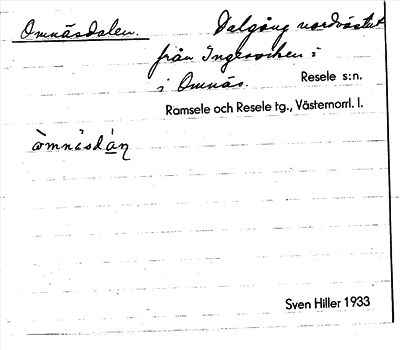 Omnäsdalen. Dalgång nordvästut
från Ingersviken i
i Omnäs. Resele s:n.
Ramsele och Resele tg., Västernorrl. l.
òmnäsdáṇ
Sven Hiller 1933